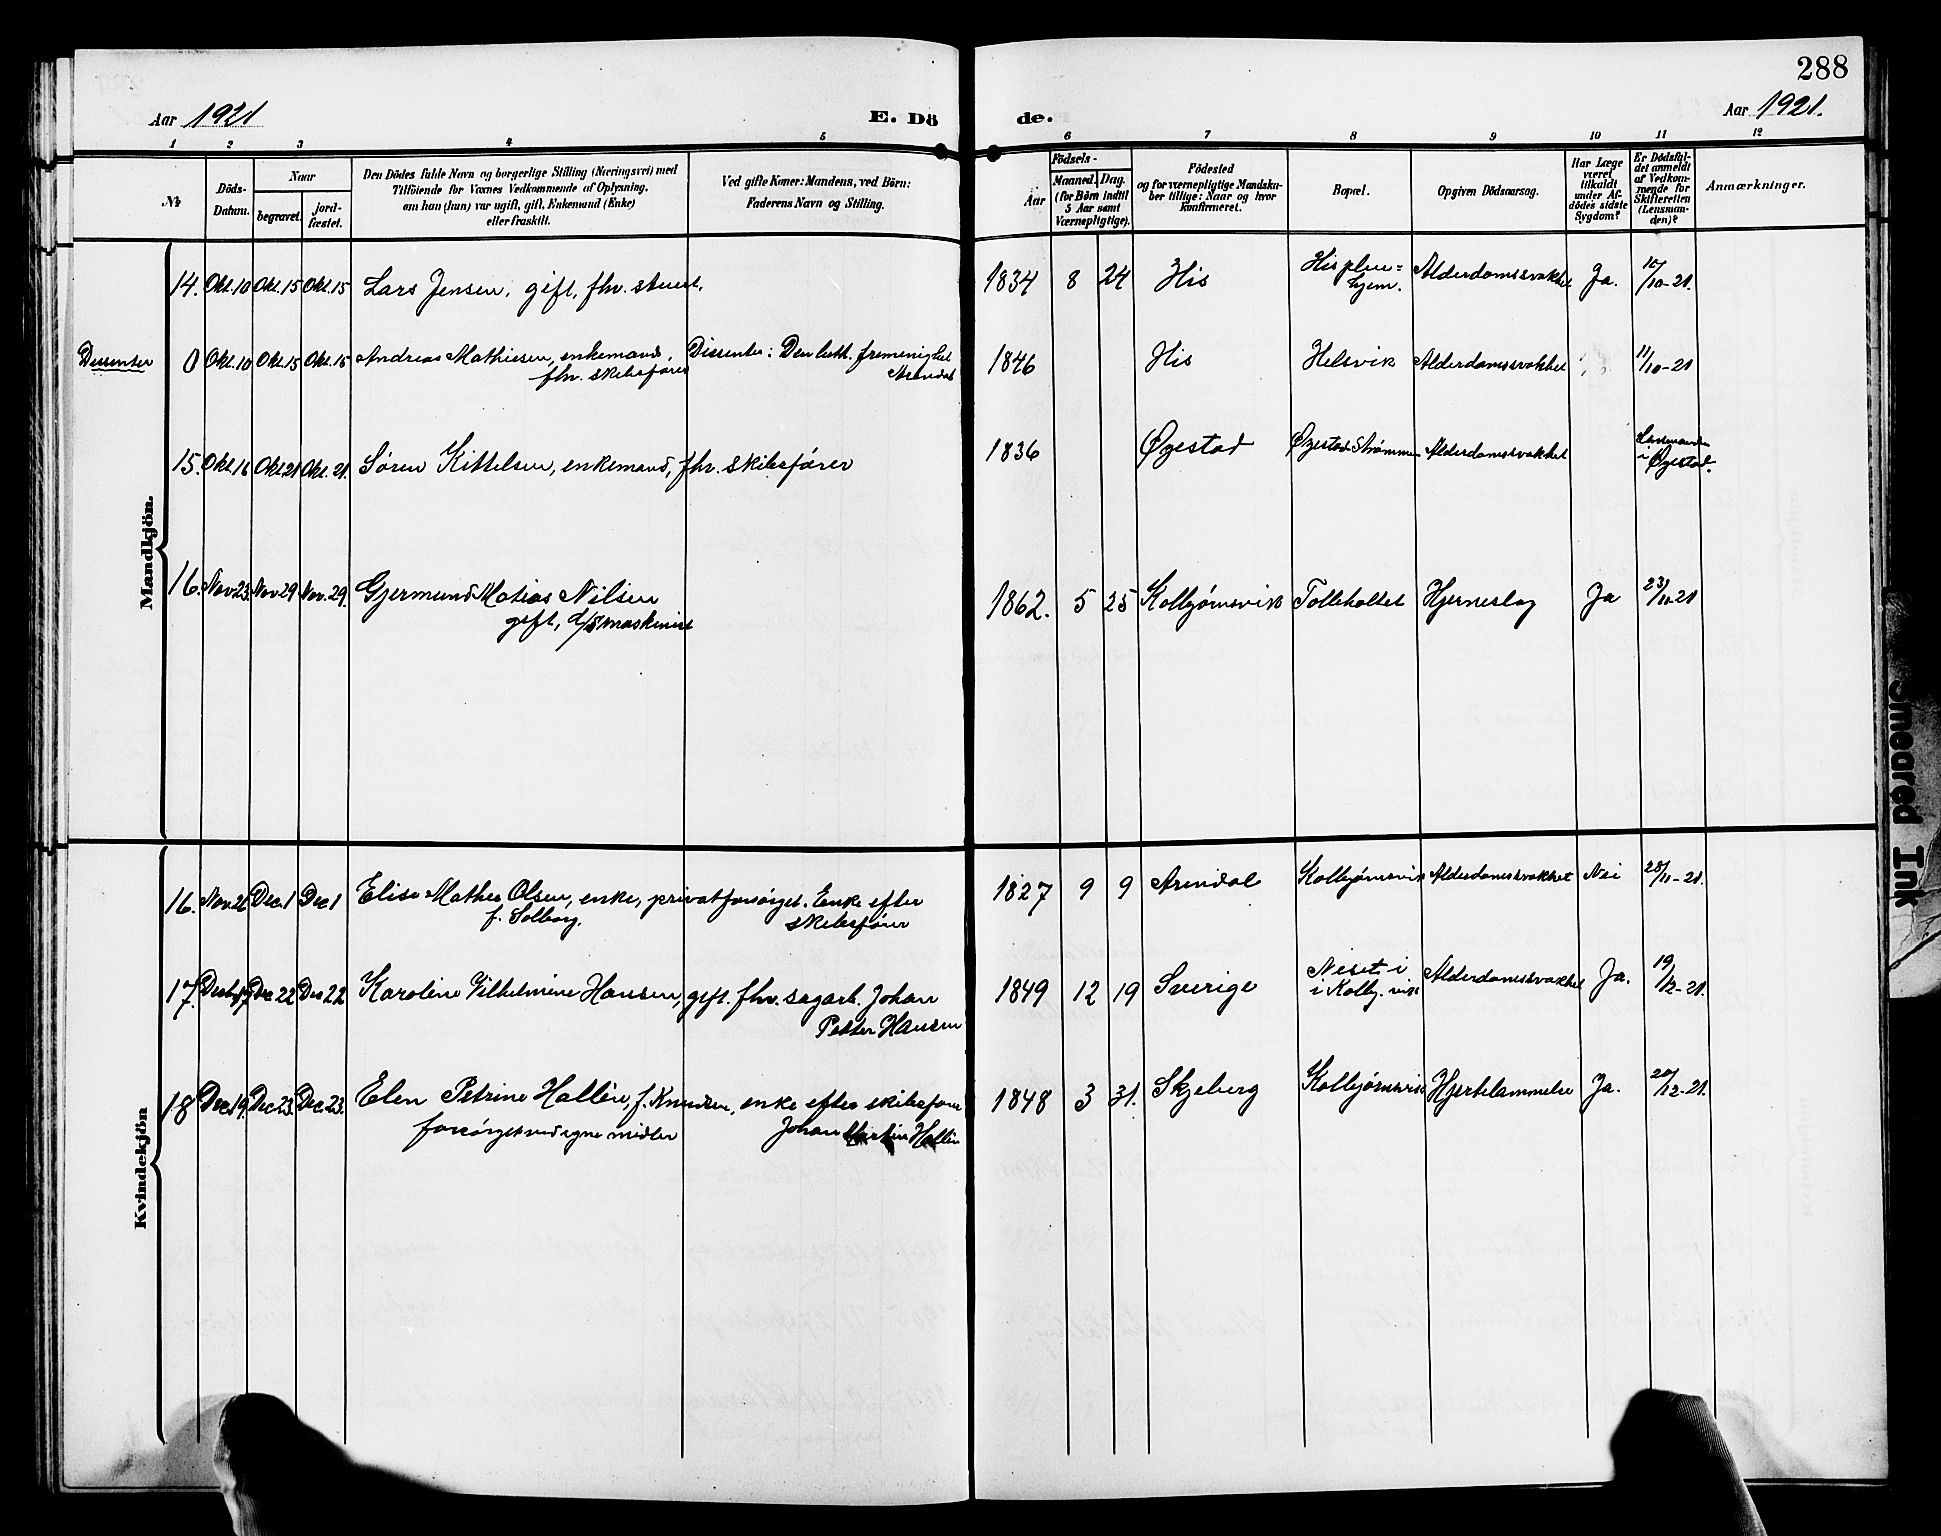 288
Aar 1921
E. Dö
de.
Aar 1921.
1 2 3 4 5 6 7 8 9 10 11 12
No
Döds-
Datum.
Naar
begravet.
jord-
fæstet.
Den Dödes fulde Navn og borgerlige Stilling (Næringsvei) med
Tilföiende for Voxnes Vedkommende af Oplysning,
om han (hun) var ugift, gift, Enkemand (Enke)
eller fraskilt.
Ved gifte Koner: Mandens, ved Börn:
Faderens Navn og Stilling.
Födsels-
Aar
Maaned. Dag.
(for Börn indtil
5 Aar samt
Værnepligtige).
Födested
og for værnepligtige Mandska-
ber tillige: Naar og hvor
konfirmeret.
Bopæl.
Opgiven Dödsaarsag.
Har Læge
været
tilkaldt
under Af-
dödes sidste
Sygdom?
Er Dödsfal-
det anmeldt
af Vedkom-
mende for
Skifteretten
(Lensman-
den)?
Anmærkninger.
Mandkjön.
14. Okt. 10 Okt. 15 Okt. 15 Lars Jensen, gift, fhv. stuert. 1834 8 24 His His pleie=
hjem. Alderdomssvakhet Ja. 10/10-21.
Dissenter 0 Okt. 10 Okt. 15 Okt. 15 Andreas Mathiesen, enkemand, Dissenter: Den luth. fremenighet 1846 His Helsvik Alderdomssvakhet 11/10-21
fhv. skibsfører Arendal
15. Okt. 16 Okt 21 Okt. 21. Søren Kittelsen, enkemand, fhv. skibsfører 1836 Øyestad Øyestad Strømmen Alderdomssvakhet Lensmanden
i Øyestad.
16. Nov 23. Nov 29 Nov. 29. Gjermund Matias Nilsen 1862. 5 25 Kolbjørnsvik Tolleholtet Hjerneslag Ja 23/11-21
gift, d/s maskinist
Kvindekjön
16. Nov. 26 Dec. 1 Dec 1 Elise Mathea Olsen, enke, privat forsørget. Enke efter 1827 9 9 Arendal Kolbjørnsvik Alderdomssvakhet Nei 28/11-21.
f. Solborg. skibsfører
17. Dec 22 Dec 22 Karoline Vilhelmine Hansen, gift. fhv. sagarb. Johan 1849 12 19 Sverige Neset i
i Kolbj. vik Alderdomssvakhet Ja. 19/12-21.
Petter Hansen
18 Dec 19. Dec 23. Dec. 23. Elen Petrine Hallèn, f. Knudsen, enke efter skibsfører 1848 3 31. Skjeberg Kolbjørnsvik Hjertelammelse Ja. 20/12-21.
forsørget ved egne midler Johan Martin Hallèn
Smeared Ink